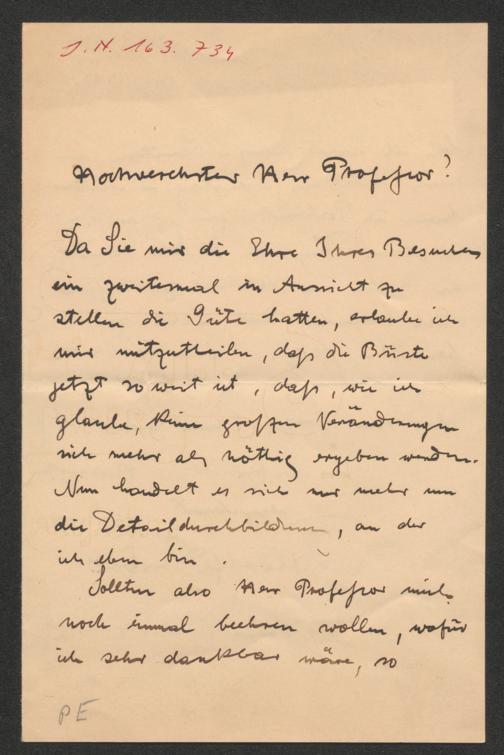 J.N. 163.734
Hochverehrter Herr Professor!
Da Sie mir die Ehre Ihres Besuches
ein zweitesmal in Aussicht zu
stellen die Güte hatten, erlaube ich
mir mitzutheilen, daß die Büste
jetzt so weit ist, daß, wie ich
glaube, keine großen Veränderungen
sich mehr als nöthig ergeben werden.
Nun handelt es sich nur mehr um
die Detaildurchbildung, an der
ich eben bin.
Sollten also Herr Professor mich
noch einmal beehren wollen, wofür
ich sehr dankbar wäre, so
PE